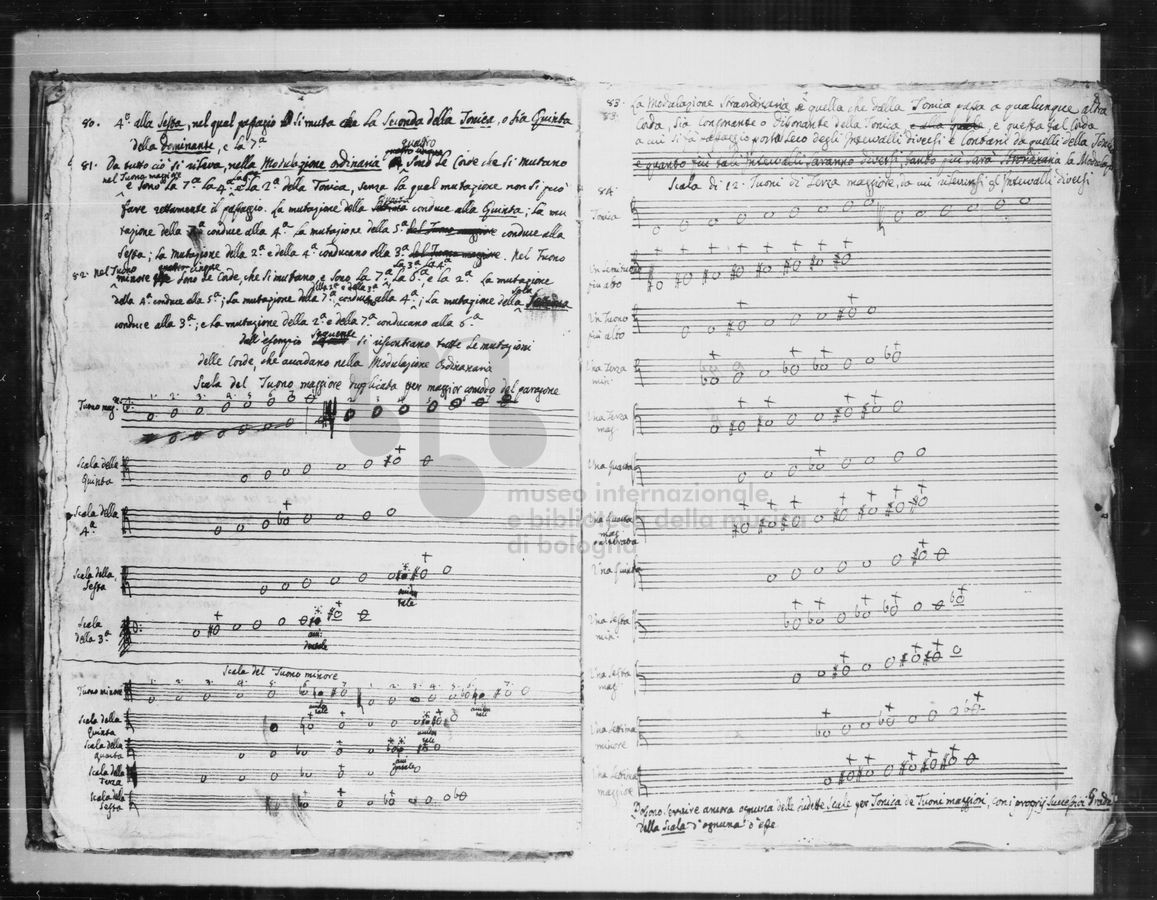 80. 4.ª alla Sesta, nel qual passaggio si muta la Seconda della Tonica, o sia Quinta
della Dominante, e la 7.ª
81. Da tutto ciò si ricava, nella Modulazione ordinaria quattro sono le Corde che si mutano
nel Tuono maggiore
e sono la 7.ª la 4.ª e la 2.ª della Tonica, senza la qual mutazione non si può
fare rettamente il passaggio. La mutazione della conduce alla Quinta; la mu
tazione della 7.ª conduce alla 4.ª la mutazione della 5.ª del Tuono maggiore conduce alla
Sesta; la mutazione della 2.ª e della 4.ª conducano alla 3.ª del Tuono maggiore. Nel Tuono
82. nel Tuono
minore cinque sono le Corde, che si mutano, e sono la 7.ª la 3.ª la 4.ª la 5.ª, e la 2.ª La mutazione
della 4.ª conduce alla 5.ª; la mutazione della 7.ª conduce alla 4.ª; la mutazione della
conduce alla 3.ª; e la mutazione della 2.ª e della 7.ª conducano alla 6.ª
dall'esempio seguente si riscontrano tutte le mutazioni
delle Corde, che accadano nella Modulazione Ordinaria
Scala del Tuono maggiore duplicata per maggior comodo del paragone
Tuono mag.
Scala della
Quinta
Scala della
4.ª
Scala della
Sesta
Scala
della 3.ª
Scala del Tuono minore
Tuono minore
Scala della
Quinta
Scala della
quarta
Scala della
Terza
Scala della
Sesta
83. La Modulazione Straordinaria è quella che dalla Tonica passa a qualunque altra
Corda, sia Consonante o Dissonante della Tonica, e questa tal Corda
a cui si fa passaggio porta seco degli Intervalli diversi e lontani da quelli della Tonica
e quanto più tali Intervalli saranno diversi, tanto più sarà Straordinaria la Modulaz.
84. Scala di 12. Tuoni di Terza maggiore, da cui gl'Intervalli diversi
Tonica
Un Semituono
più alto
Un Tuono
più alto
Una Terza
min.
Una Terza
mag.
Una Quarta
Una Quarta
mag.
Una Quinta
Una Sesta
min.
Una Sesta
mag.
Una Settima
minore
Una Settima
maggiore
Possono servire ancora ognuna delle sudette Scale per Tonica de Tuoni maggiori, con i proprj successivi Gradi
della Scala d'ognuna d'esse
museo internazionale
e biblioteca della musica
di bologna